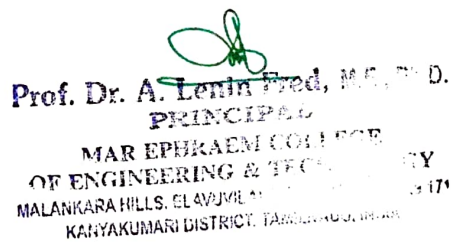 Prof. Dr. A. Lenin Fred, M.E., Ph.D.
PRINCIPAL
MAR EPHRAEM COLLEGE
OF ENGINEERING &
MALANKARA HILLS, ELAVUVILAI 171
KANYAKUMARI DISTRICT, TAMILNADU, INDIA